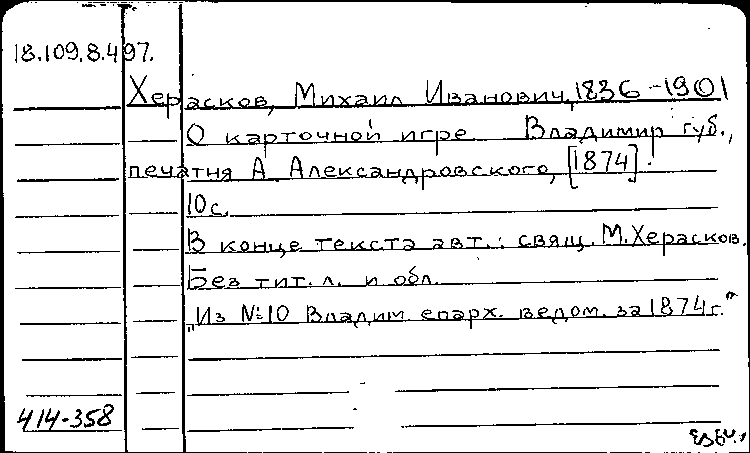 18.109.8.497.
Херасков, Михаил Иванович, 1836-1901
О карточной игре Владимир губ.,
печатня А. Александровского, [1874].
10 с.
В конце текста авт.: свящ. М. Херасков.
Без тит. л. и обл.
„Из №10 Владим. епарх. ведом. за 1874 г."
414-358